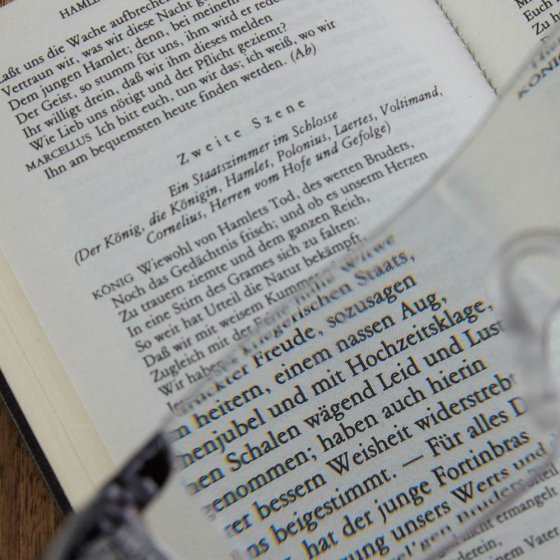 HAML
Laßt uns die Wache aufbrechen
Vertraun wir, was wir diese Nacht
Dem jungen Hamlet; denn, bei meinem
Der Geist, so stumm für uns, ihm wird er rede
Ihr willigt drein, daß wir ihm dieses melden
Wie Lieb uns nötigt und der Pflicht geziemt?
MARCELLUS Ich bitt euch, tun wir das; ich weiß, wo wir
Ihn am bequemsten heute finden werden. (Ab)
Zweite Szene
Ein Staatszimmer im Schlosse
(Der König, die Königin, Hamlet, Polonius, Laertes, Voltimand,
Cornelius, Herren vom Hofe und Gefolge)
KÖNIG Wiewohl von Hamlets Tod, des werten Bruders,
Noch das Gedächtnis frisch; und ob es unserm Herzen
Zu trauern ziemte und dem ganzen Reich,
In eine Stirn des Grames sich zu falten:
So weit hat Urteil die Natur bekämpft,
Daß wir mit weisem Kummer
Zugleich mit der
Wir haben kriegerischen Staats,
ter Freude, sozusagen
heitern, einem nassen Aug,
henjubel und mit Hochzeitsklage,
en Schalen wägend Leid und Lust
enommen; haben auch hierin
rer bessern Weisheit widerstrebt
ns beigestimmt. — Für alles D
hat der junge Fortinbras
ung unsers Werts und
gen Bruders
ermangelt
einem Vater
KÖNIG